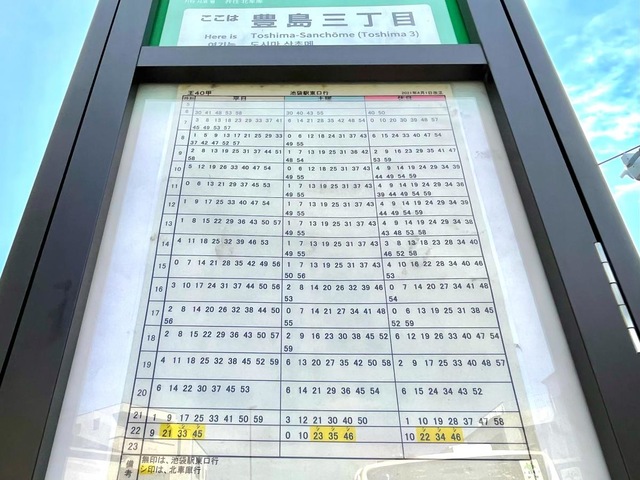 ここは 豊島三丁目
Here is Toshima-Sanchōme (Toshima 3)
여기는 도시마 산초메
王40甲 池袋駅東口行
時間 平日 土曜 休日
5
6 30 41 48 53 58 30 40 49 59 40 50
7 3 8 13 18 23 29 33 37 41 6 14 21 28 35 42 48 54 0 10 20 30 39 46 57
45 49 53 57
8 1 5 9 13 17 21 25 29 33 0 6 12 18 24 31 37 43 6 15 24 33 40 47 54
37 42 47 52 57 49 55
9 2 8 13 19 25 31 37 44 51 1 7 13 19 25 31 36 42 1 7 13 20 28 35 41 47
58 48 54 53 59
10 5 12 19 26 33 40 47 54 0 6 12 19 25 31 37 43 4 9 14 19 24 29 34 39
49 55 44 49 54 59
11 0 6 13 21 29 37 45 53 1 7 13 19 25 31 37 43 4 9 14 19 24 29 34 39
49 55 44 49 54 59
12 1 9 17 25 33 40 47 54 1 7 13 19 25 31 37 43 4 9 14 19 24 29 34 39
49 55 44 49 54 59
13 1 8 15 22 29 36 43 50 57 1 7 13 19 25 31 37 43 4 9 14 19 24 29 34 38
49 55 43 48 53 58
14 4 11 18 25 32 39 46 53 1 7 13 19 25 31 37 43 3 8 13 18 23 28 34 40
49 55 46 52 58
15 0 7 14 21 28 35 42 49 56 1 7 13 19 25 31 37 43 4 10 16 22 28 34 40 46
50 56 53
16 3 10 17 24 31 38 44 50 56 2 8 14 20 26 32 39 46 0 7 14 21 28 34 40 47
53 54
17 2 8 14 20 26 32 38 44 50 0 7 14 21 27 34 41 48 0 6 13 19 25 32 38 45
56 55 52 59
18 2 8 15 22 29 36 43 50 57 2 9 16 23 30 37 44 52 6 12 19 26 33 40 47 54
59
19 4 11 18 25 32 38 45 52 59 6 13 20 27 35 42 50 58 2 9 17 25 33 40 48 57
20 6 14 22 30 37 45 53 6 14 21 29 36 45 54 6 15 24 34 43 52
21 1 9 17 25 33 41 50 59 3 12 21 30 40 50 1 10 19 28 37 47 58
22 9 シ21 シ33 シ45 0 10 シ23 シ35 シ46 10 シ22 シ34 シ46
23
備考 無印は、池袋駅東口行
シ印は、北車庫行